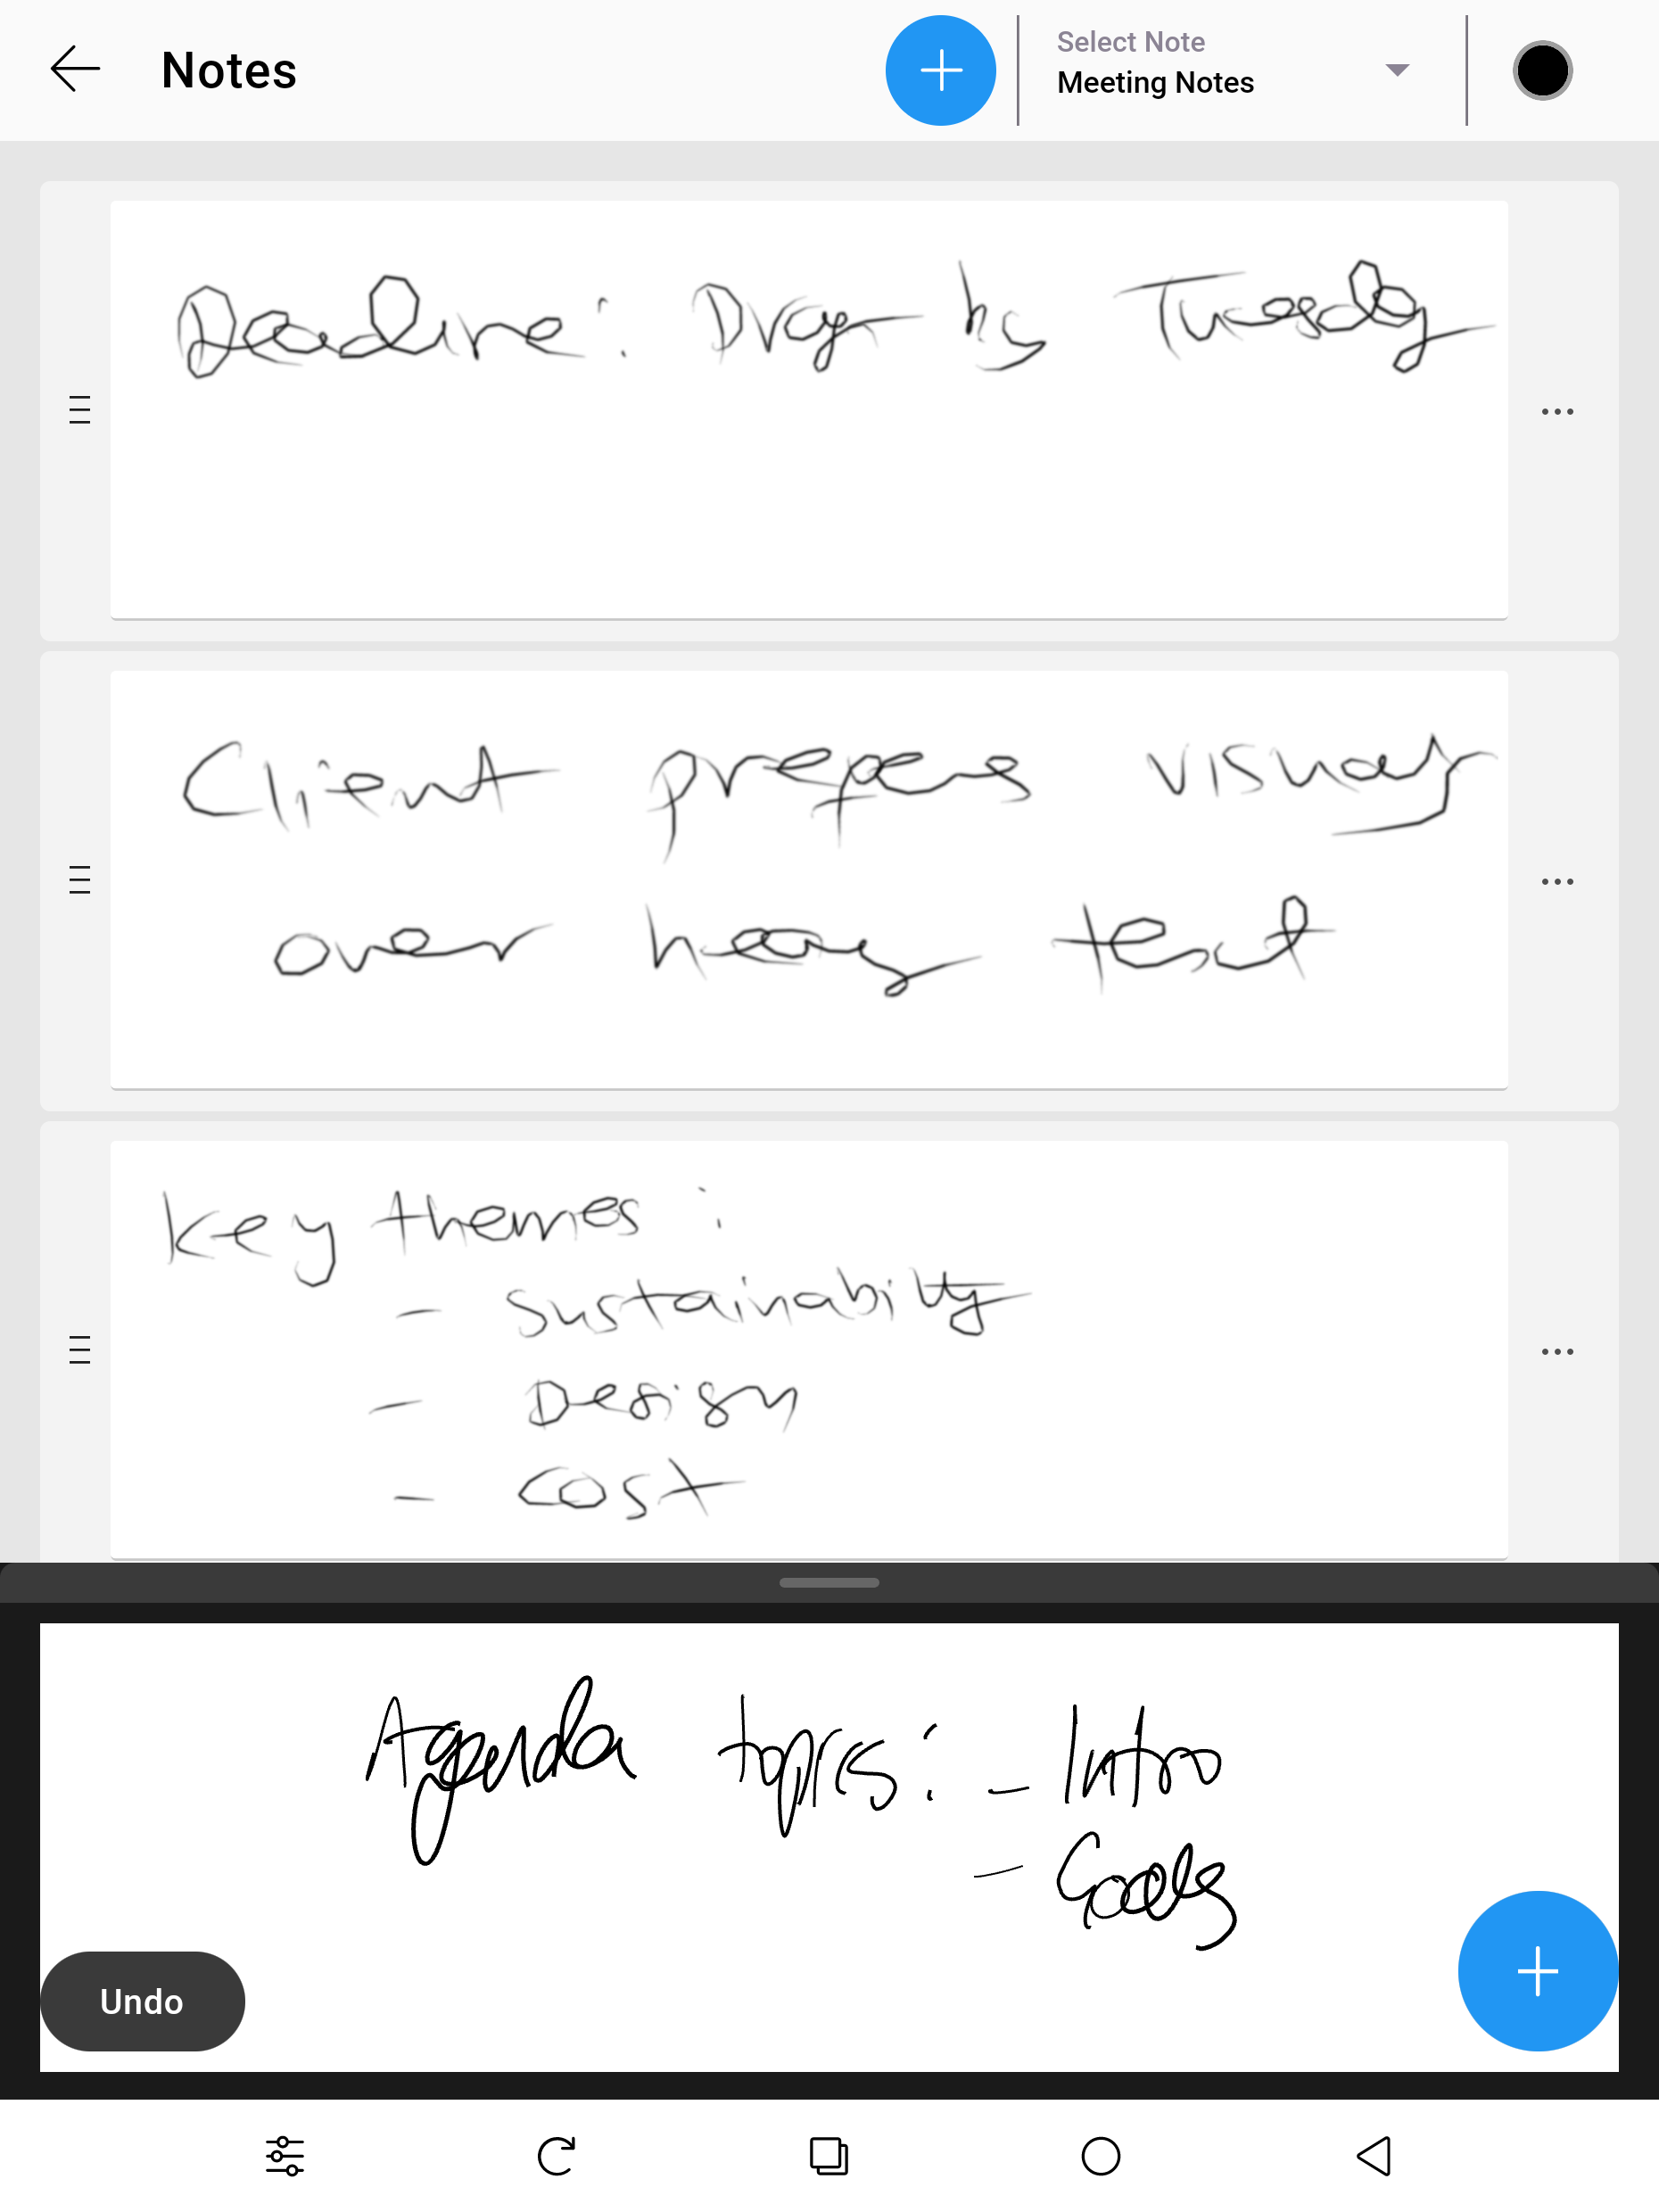 Notes
Select Note
Meeting Notes
Deadline: by Tuesday
Client prefers visuals
over heavy text
Key themes:
- sustainability
- Design
- cost
Agenda topics: - Intro
- Goals
Undo